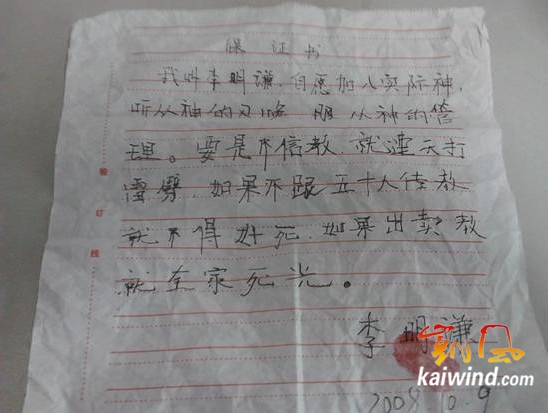 保证书
我叫李明谦，自愿加入实际神，
听从神的 服从神的管
理。要是不信教 就遭天打
雷劈，如果不跟五十人传教
就不得好死，如果出卖教
就全家死光。
李明谦
凯风
kaiwind.com
订
线